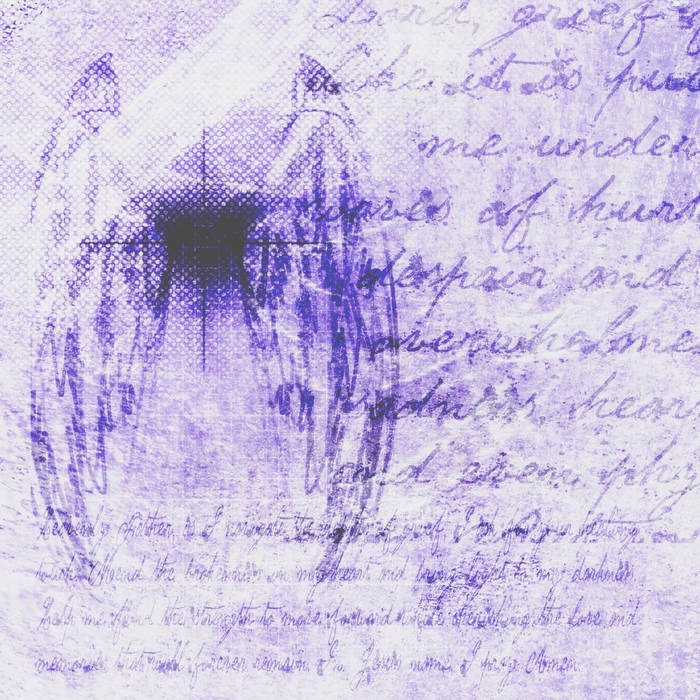 Lord, grief
like it is
me under
waves of hurt
despair and
overwhelme
sadness, hear
and even phy
Heavenly Father, as I navigate the depths of grief, I ask for your
touch. Mend the brokenness in my heart and bring light to my darkness.
Help me find the strength to move forward while cherishing the love and
memories that will forever remain. In Jesus name, I pray. Amen.